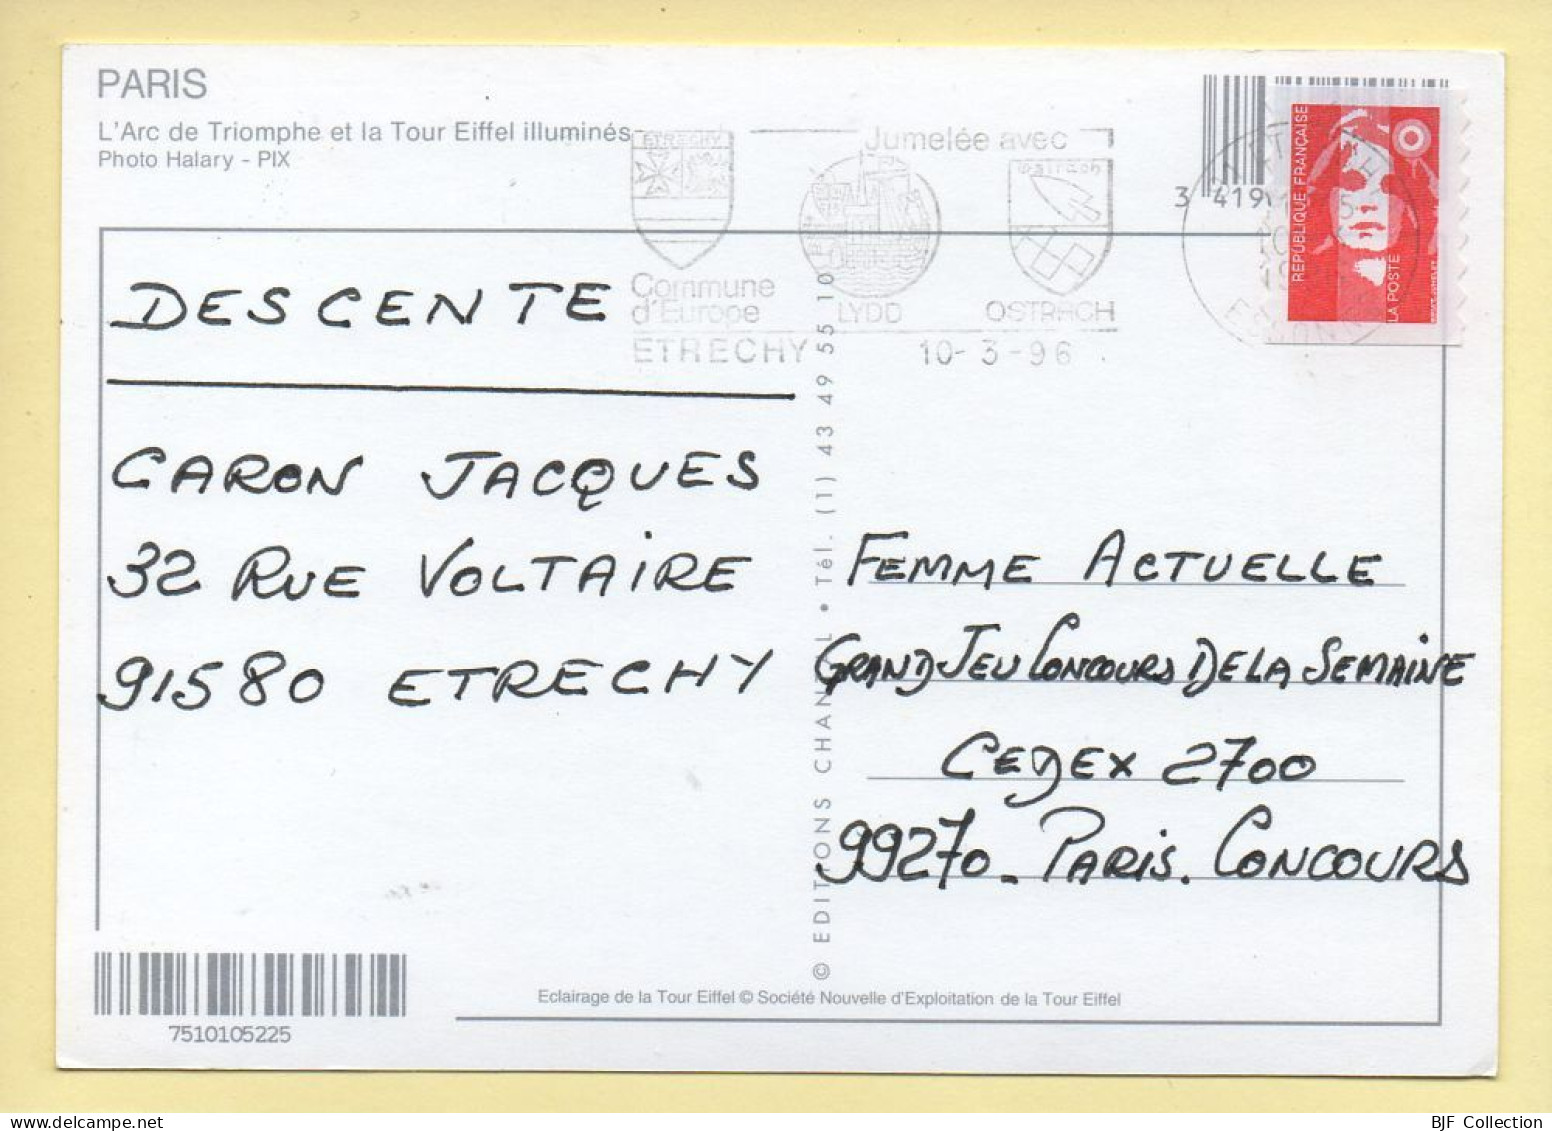 PARIS
L'Arc de Triomphe et la Tour Eiffel illuminés
Photo Halary - PIX
ETRECHY
Jumelée avec
Ostrach
Commune
d'Europe
LYDD
OSTRACH
ETRECHY 10-3-96
3 419
REPUBLIQUE FRANÇAISE
LA POSTE
DESCENTE
CARON JACQUES
32 RUE VOLTAIRE
91580 ETRECHY
FEMME ACTUELLE
GRAND JEU CONCOURS DE LA SEMAINE
CEDEX 2700
99270 - PARIS. CONCOURS
7510105225
Eclairage de la Tour Eiffel © Société Nouvelle d'Exploitation de la Tour Eiffel
BJF Collection